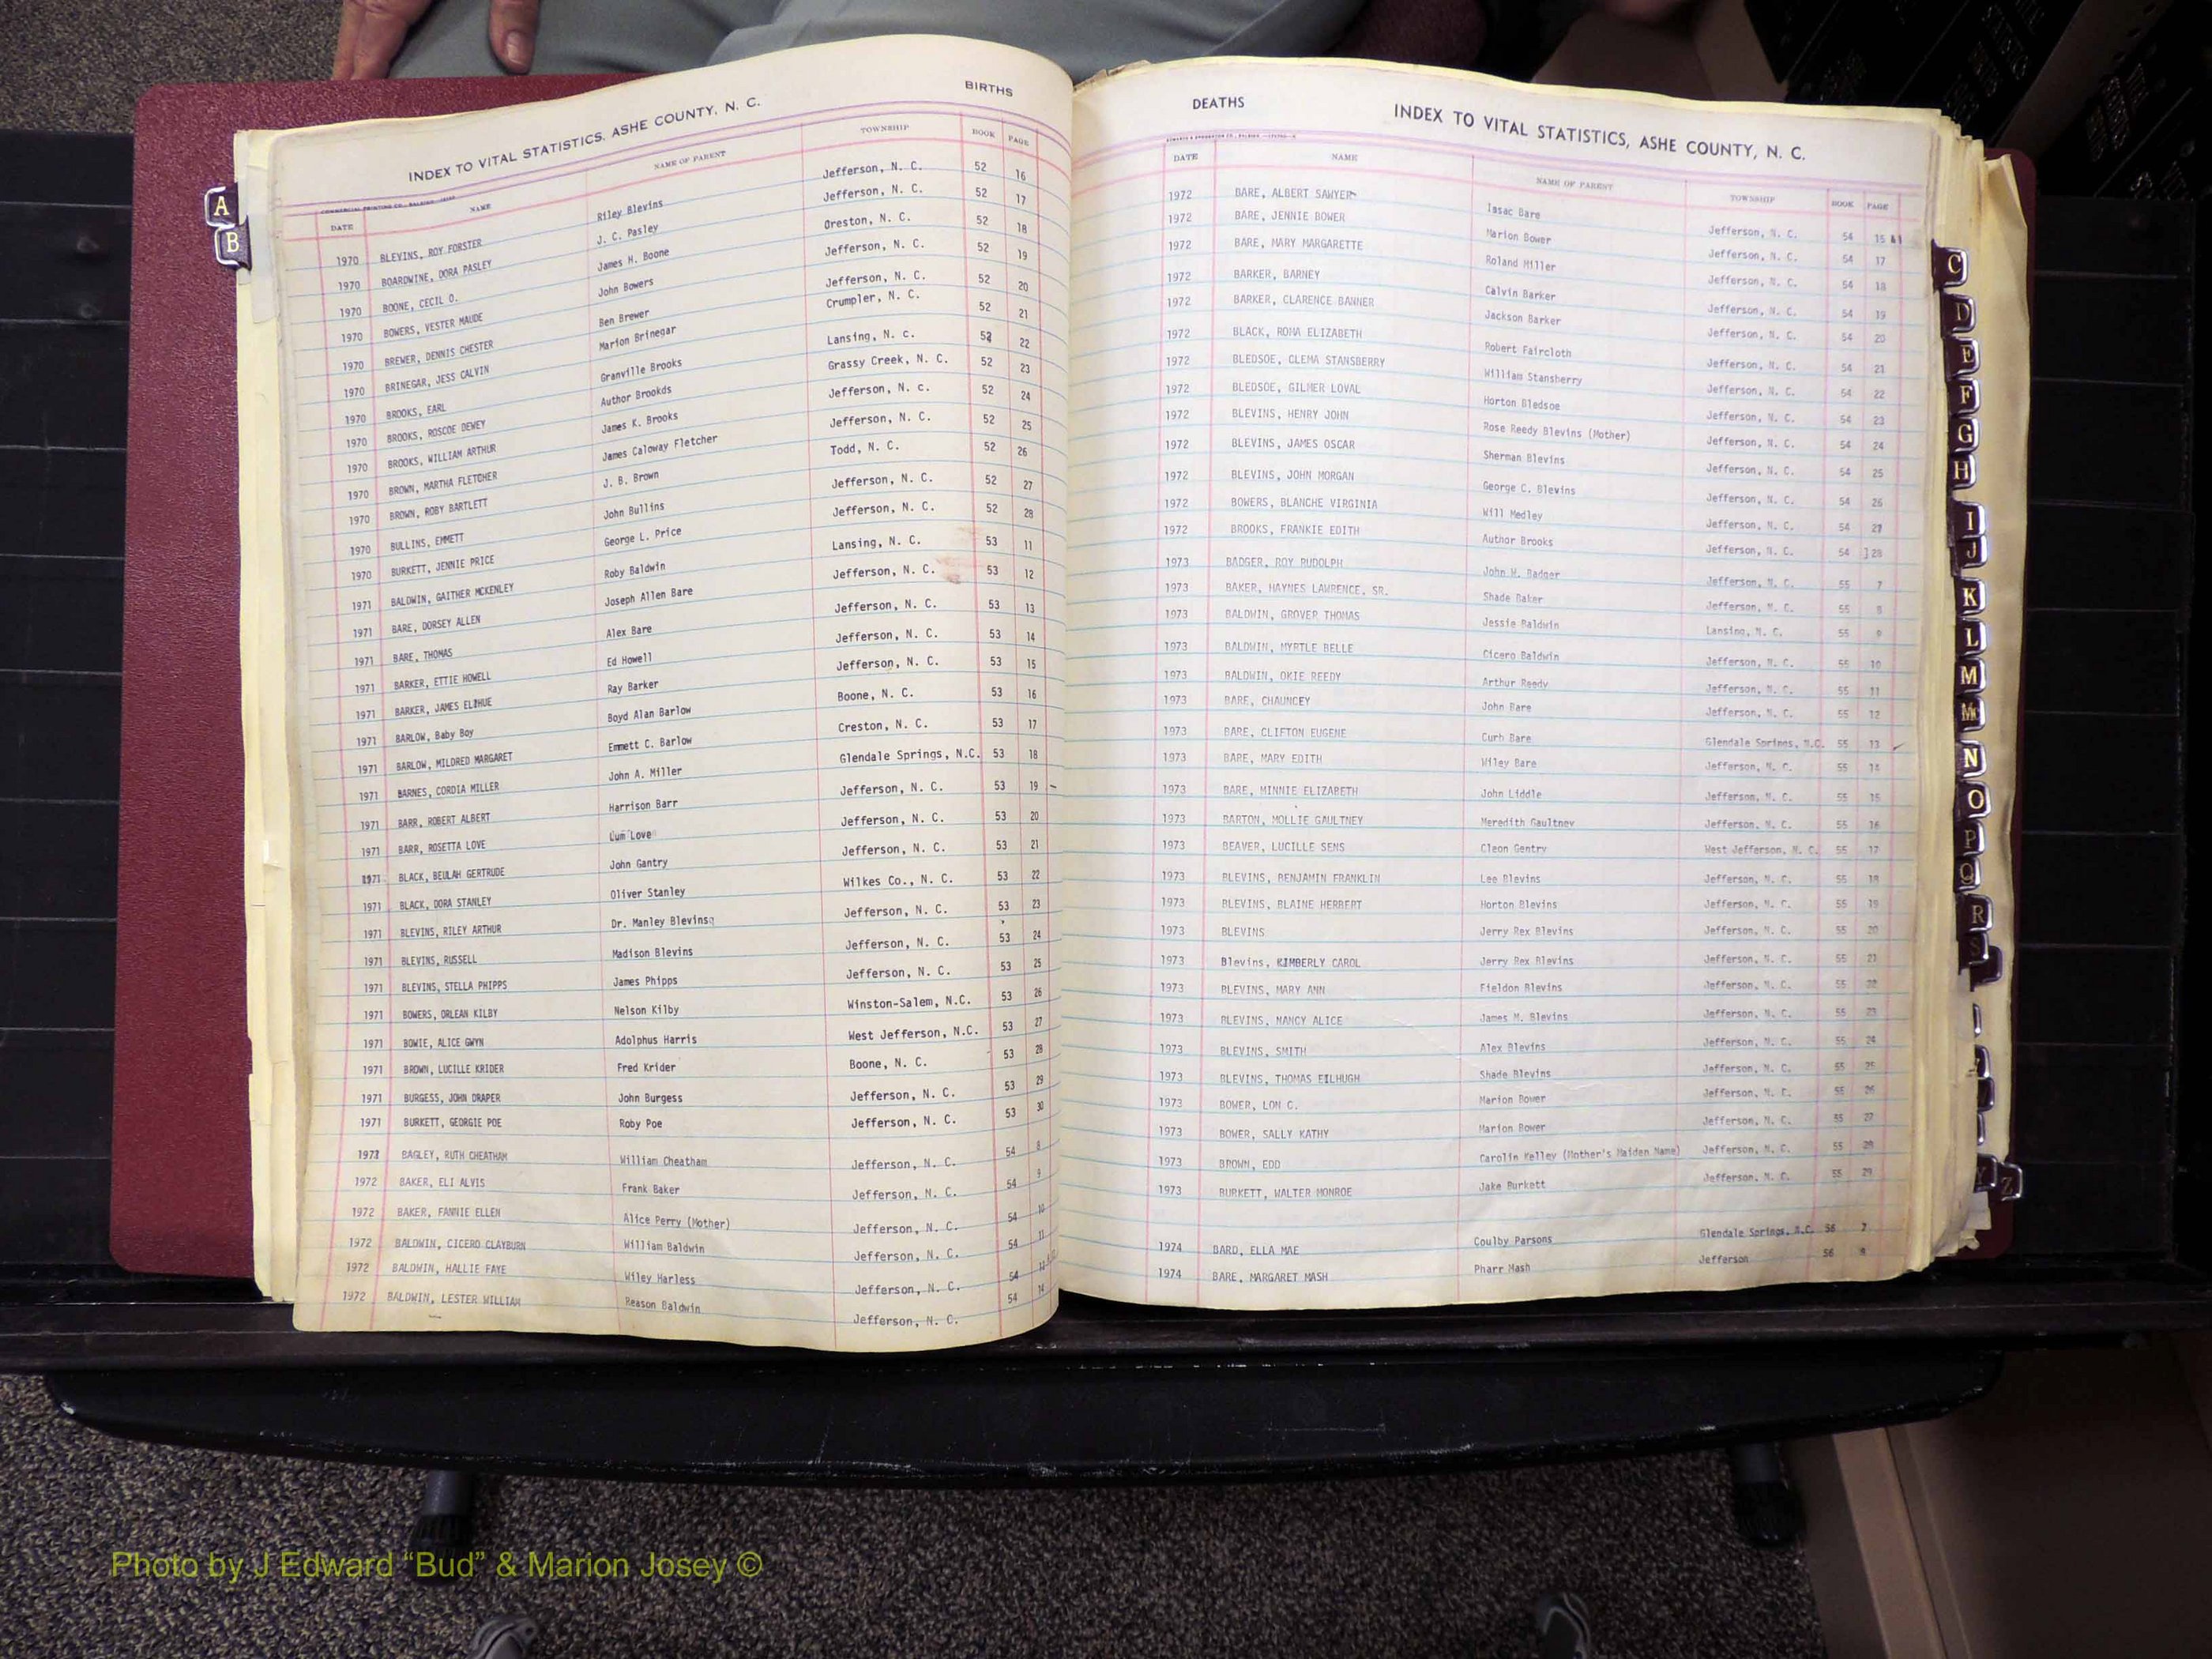 BIRTHS
INDEX TO VITAL STATISTICS, ASHE COUNTY, N. C.
DATE NAME NAME OF PARENT TOWNSHIP BOOK PAGE
A
B
1970 BLEVINS, ROY FORSTER Riley Blevins Jefferson, N. C. 52 16
1970 BOARDWINE, DORA PASLEY J. C. Pasley Jefferson, N. C. 52 17
1970 BOONE, CECIL O. James H. Boone Creston, N. C. 52 18
1970 BOWERS, VESTER MAUDE John Bowers Jefferson, N. C. 52 19
1970 BREWER, DENNIS CHESTER Ben Brewer Jefferson, N. C. 52 20
1970 BRINEGAR, JESS CALVIN Marion Brinegar Crumpler, N. C. 52 21
1970 BROOKS, EARL Granville Brooks Lansing, N. c. 52 22
1970 BROOKS, ROSCOE DEWEY Author Brookds Grassy Creek, N. C. 52 23
1970 BROOKS, WILLIAM ARTHUR James K. Brooks Jefferson, N. c. 52 24
1970 BROWN, MARTHA FLETCHER James Caloway Fletcher Jefferson, N. C. 52 25
1970 BROWN, ROBY BARTLETT J. B. Brown Todd, N. C. 52 26
1970 BULLINS, EMMETT John Bullins Jefferson, N. C. 52 27
1970 BURKETT, JENNIE PRICE George L. Price Jefferson, N. C. 52 28
1971 BALDWIN, GAITHER MCKENLEY Roby Baldwin Lansing, N. C. 53 11
1971 BARE, DORSEY ALLEN Joseph Allen Bare Jefferson, N. C. 53 12
1971 BARE, THOMAS Alex Bare Jefferson, N. C. 53 13
1971 BARKER, ETTIE HOWELL Ed Howell Jefferson, N. C. 53 14
1971 BARKER, JAMES ELIHUE Ray Barker Jefferson, N. C. 53 15
1971 BARLOW, Baby Boy Boyd Alan Barlow Boone, N. C. 53 16
1971 BARLOW, MILDRED MARGARET Emmett C. Barlow Creston, N. C. 53 17
1971 BARNES, CORDIA MILLER John A. Miller Glendale Springs, N.C. 53 18
1971 BARR, ROBERT ALBERT Harrison Barr Jefferson, N. C. 53 19
1971 BARR, ROSETTA LOVE Lum Love Jefferson, N. C. 53 20
1971 BLACK, BEULAH GERTRUDE John Gantry Jefferson, N. C. 53 21
1971 BLACK, DORA STANLEY Oliver Stanley Wilkes Co., N. C. 53 22
1971 BLEVINS, RILEY ARTHUR Dr. Manley Blevins Jefferson, N. C. 53 23
1971 BLEVINS, RUSSELL Madison Blevins Jefferson, N. C. 53 24
1971 BLEVINS, STELLA PHIPPS James Phipps Jefferson, N. C. 53 25
1971 BOWERS, ORLEAN KILBY Nelson Kilby Winston-Salem, N.C. 53 26
1971 BOWIE, ALICE GWYN Adolphus Harris West Jefferson, N.C. 53 27
1971 BROWN, LUCILLE KRIDER Fred Krider Boone, N. C. 53 28
1971 BURGESS, JOHN DRAPER John Burgess Jefferson, N. C. 53 29
1971 BURKETT, GEORGIE POE Roby Poe Jefferson, N. C. 53 30
1972 BAGLEY, RUTH CHEATHAM William Cheatham Jefferson, N. C. 54 8
1972 BAKER, ELI ALVIS Frank Baker Jefferson, N. C. 54 9
1972 BAKER, FANNIE ELLEN Alice Perry (Mother) Jefferson, N. C. 54 10
1972 BALDWIN, CICERO CLAYBURN William Baldwin Jefferson, N. C. 54 11
1972 BALDWIN, HALLIE FAYE Wiley Harless Jefferson, N. C. 54
1972 BALDWIN, LESTER WILLIAM Reason Baldwin Jefferson, N. C. 54 14
DEATHS
INDEX TO VITAL STATISTICS, ASHE COUNTY, N. C.
DATE NAME NAME OF PARENT TOWNSHIP BOOK PAGE
1972 BARE, ALBERT SAWYER Issac Bare Jefferson, N. C. 54 15
1972 BARE, JENNIE BOWER Marion Bower Jefferson, N. C. 54 17
1972 BARE, MARY MARGARETTE Roland Miller Jefferson, N. C. 54 18
1972 BARKER, BARNEY Calvin Barker Jefferson, N. C. 54 19
1972 BARKER, CLARENCE BANNER Jackson Barker Jefferson, N. C. 54 20
1972 BLACK, ROMA ELIZABETH Robert Faircloth Jefferson, N. C. 54 21
1972 BLEDSOE, CLEMA STANSBERRY William Stansberry Jefferson, N. C. 54 22
1972 BLEDSOE, GILMER LOVAL Horton Bledsoe Jefferson, N. C. 54 23
1972 BLEVINS, HENRY JOHN Rose Reedy Blevins (Mother) Jefferson, N. C. 54 24
1972 BLEVINS, JAMES OSCAR Sherman Blevins Jefferson, N. C. 54 25
1972 BLEVINS, JOHN MORGAN George C. Blevins Jefferson, N. C. 54 26
1972 BOWERS, BLANCHE VIRGINIA Will Medley Jefferson, N. C. 54 27
1972 BROOKS, FRANKIE EDITH Author Brooks Jefferson, N. C. 54 28
1973 BADGER, ROY RUDOLPH John W. Badger Jefferson, N. C. 55 7
1973 BAKER, HAYNES LAWRENCE, SR. Shade Baker Jefferson, N. C. 55 8
1973 BALDWIN, GROVER THOMAS Jessie Baldwin Lansing, N. C. 55 9
1973 BALDWIN, MYRTLE BELLE Cicero Baldwin Jefferson, N. C. 55 10
1973 BALDWIN, OKIE REEDY Arthur Reedy Jefferson, N. C. 55 11
1973 BARE, CHAUNCEY John Bare Jefferson, N. C. 55 12
1973 BARE, CLIFTON EUGENE Curb Bare Glendale Springs, N.C. 55 13
1973 BARE, MARY EDITH Wiley Bare Jefferson, N. C. 55 14
1973 BARE, MINNIE ELIZABETH John Liddle Jefferson, N. C. 55 15
1973 BARTON, MOLLIE GAULTNEY Meredith Gaultney Jefferson, N. C. 55 16
1973 BEAVER, LUCILLE SENS Cleon Gentry West Jefferson, N. C. 55 17
1973 BLEVINS, BENJAMIN FRANKLIN Lee Blevins Jefferson, N. C. 55 18
1973 BLEVINS, BLAINE HERBERT Horton Blevins Jefferson, N. C. 55 19
1973 BLEVINS Jerry Rex Blevins Jefferson, N. C. 55 20
1973 Blevins, KIMBERLY CAROL Jerry Rex Blevins Jefferson, N. C. 55 21
1973 BLEVINS, MARY ANN Fieldon Blevins Jefferson, N. C. 55 22
1973 BLEVINS, NANCY ALICE James M. Blevins Jefferson, N. C. 55 23
1973 BLEVINS, SMITH Alex Blevins Jefferson, N. C. 55 24
1973 BLEVINS, THOMAS EILHUGH Shade Blevins Jefferson, N. C. 55 25
1973 BOWER, LON C. Marion Bower Jefferson, N. C. 55 26
1973 BOWER, SALLY KATHY Marion Bower Jefferson, N. C. 55 27
1973 BROWN, EDD Carolin Kelley (Mother's Maiden Name) Jefferson, N. C. 55 28
1973 BURKETT, WALTER MONROE Jake Burkett Jefferson, N. C. 55 29
1974 BARD, ELLA MAE Coulby Parsons Glendale Springs, N.C. 56 7
1974 BARE, MARGARET MASH Pharr Mash Jefferson 56 8
C
D
E
F
G
H
I
J
K
L
M
Mc
N
O
P
Q
R
S
Z
Photo by J Edward “Bud” & Marion Josey ©